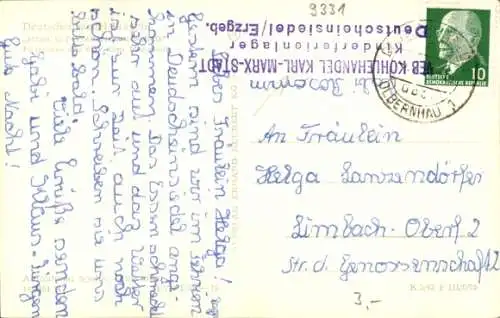 9331
VEB KOHLEHANDEL KARL-MARX-STADT
Kinderferienlager
Deutscheinsiedel/Erzgeb.
OLBERNHAU
DEUTSCHE
DEMOKRATISCHE
REPUBLIK
10
Liebes Fräulein Helga!
Gestern sind wir im schönen
in Deutscheinsiedel ange-
kommen. Das Essen schmeckt
sehr gut und das Wetter
ist zur Zeit auch noch
schön. Schreiben sie uns
bitte bald!
Viele Grüße senden
Gabi und Klaus-Jürgen
Gute Nacht!
An Fräulein
Helga
Limbach-Oberf. 2
Str. d. Genossenschaft 2
3,-